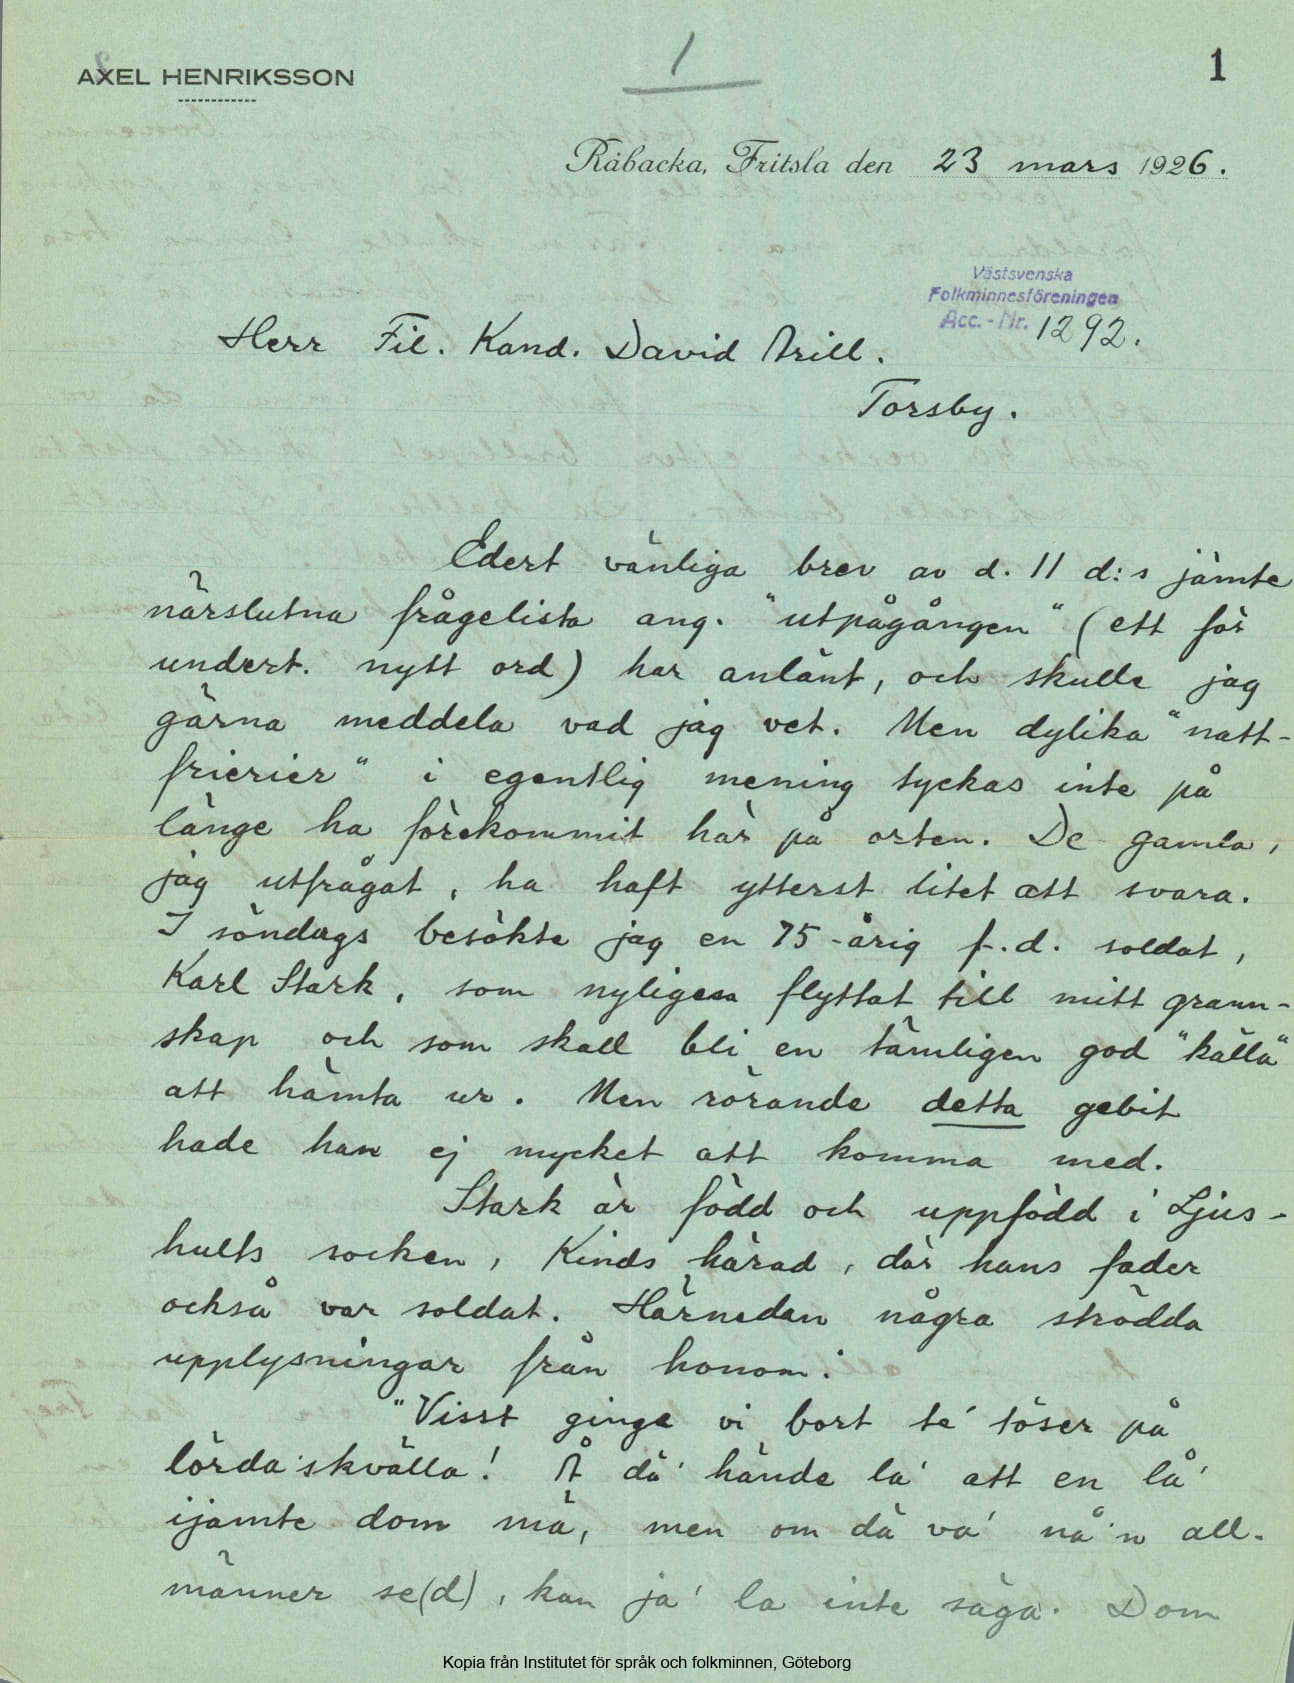 1
1
AXEL HENRIKSSON
Råbacka, Fritsla den 23 mars 1926.
Västsvenska
Folkminnesföreningen
Acc.-Nr. 1292.
Herr Fil. Kand. David Arill.
Torsby.
Edert vänliga brev av d. 11 d:s jämte
närslutna frågelista ang. "utpågången" (ett för
undert. nytt ord) har anlänt, och skulle jag
gärna meddela vad jag vet. Men dylika "natt-
frierier" i egentlig mening tyckas inte på
länge ha förekommit här på orten. De gamla,
jag utfrågat, ha haft ytterst litet att svara.
I söndags besökte jag en 75-årig f.d. soldat,
Karl Stark, som nyligen flyttat till mitt grann-
skap och som skall bli en tämligen god "källa"
att hämta ur. Men rörande detta gebit
hade han ej mycket att komma med.
Stark är född och uppfödd i Ljus-
hults socken, Kinds härad, där hans fader
också var soldat. Härnedan några strödda
upplysningar från honom:
"Visst ginge vi bort te' töser på
lörda'skvälla! Å dä' hände la' att en lå'
ijämte dom mä, men om dä va' nå'n all-
männer se(d), kan ja' la inte säga. Dom
Kopia från Institutet för språk och folkminnen, Göteborg